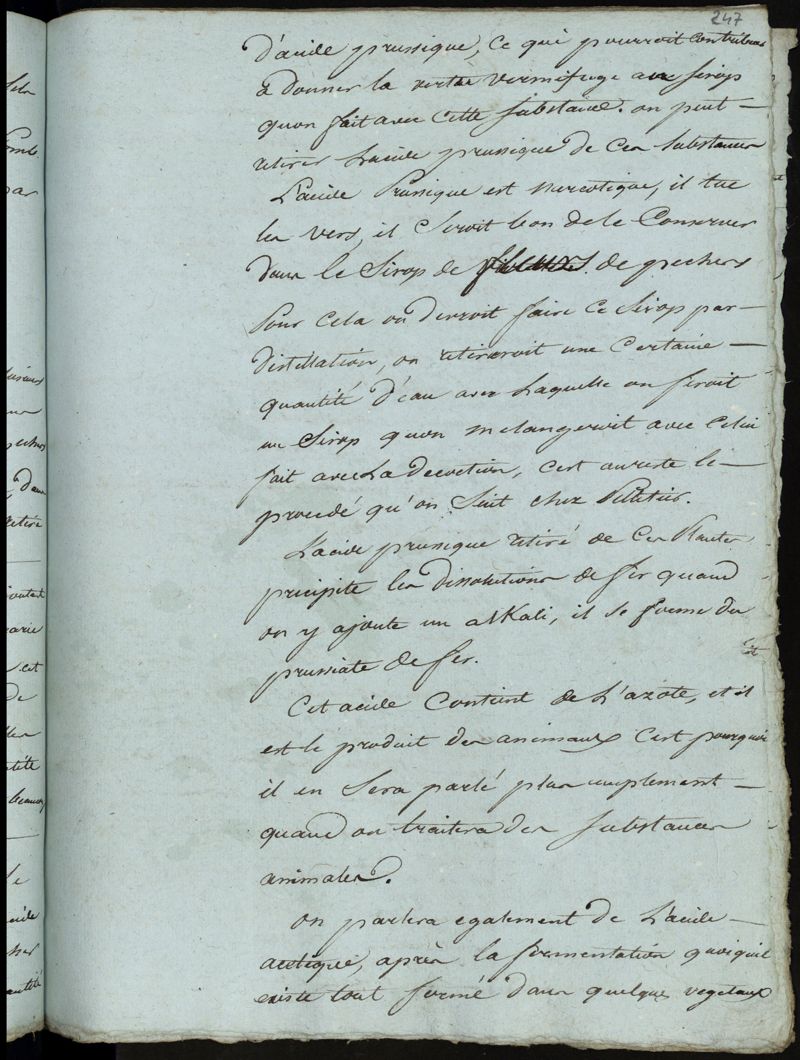 247
d'acide prussique, ce qui pourroit contribuer
a donner la vertue vermifuge aux sirop
quon fait avec cette substance. on peut
retirer L'acide prussique de ces substances
L'acide Prussique est narcotique, il tue
les vers, il seroit bon de le Conserver
dans le sirop de fleurs de pechers
Pour cela on devroit faire ce sirop par
distillation, on retireroit une certaine
quantité d'eau avec Laquelle on feroit
un sirop quon melangeroit avec celui
fait avec La decoction, c'est au reste le
procedé qu'on suit chez Pelletier.
L'acide prussique retiré de ces Plantes
precipite les dissolutions de fer quand
on y ajoute un alKali, il se forme du
prussiate de fer.
Cet acide Contient de L'azote, et il
est le produit des animaux c'est pourquoi
il en sera parlé plus amplement
quand on traitera des substances
animales.
on parlera egalement de L'acide
acetique, après la fermentation quoiquil
existe tout formé dans quelques vegetaux